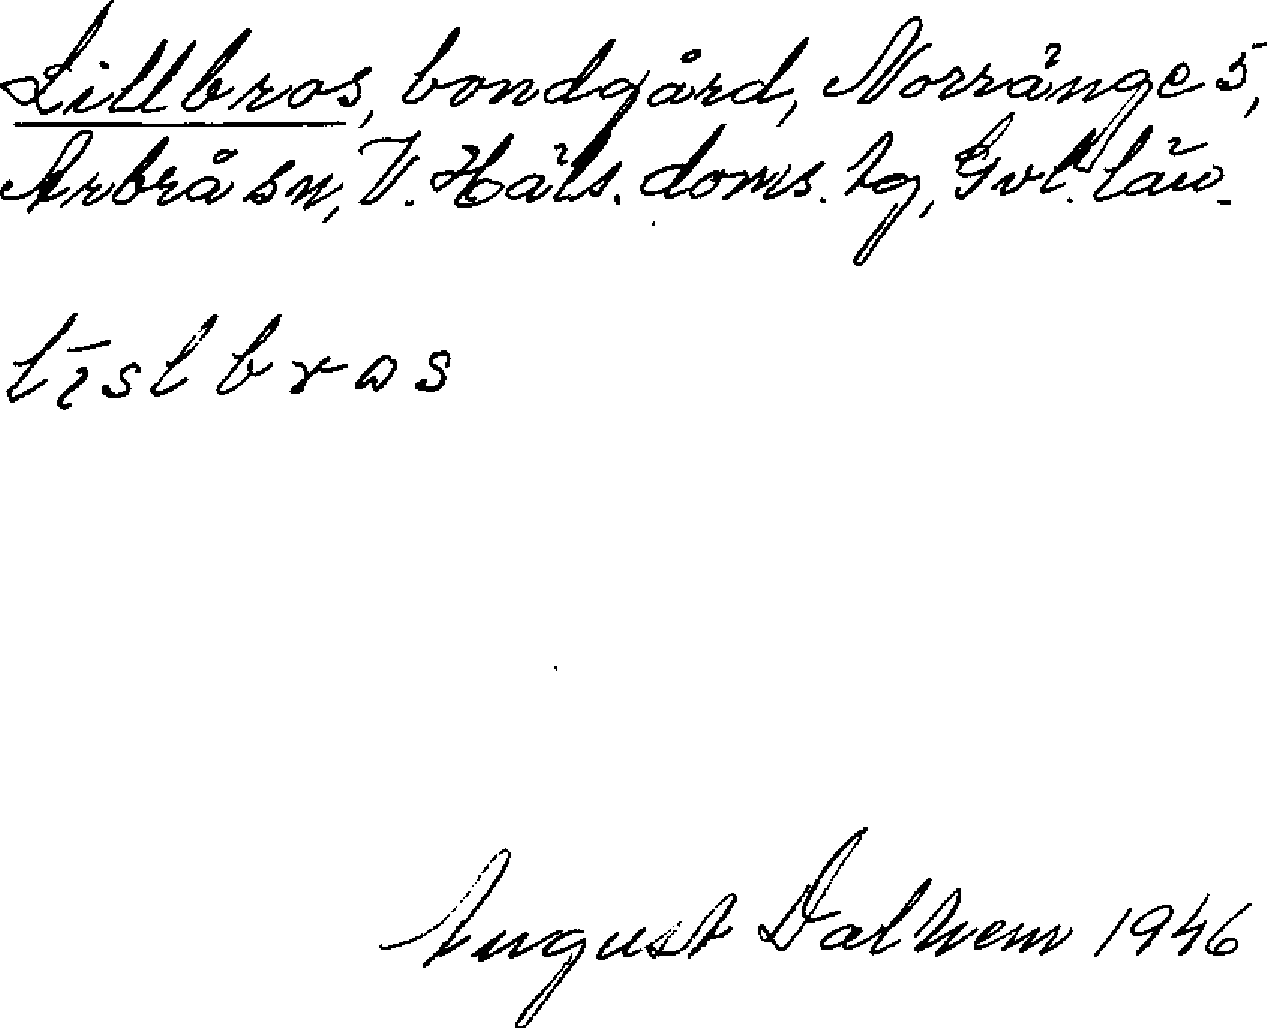 Lillbros, bondgård, Norränge 5,
Arbrå sn, V. Häls. doms. tg, Gvl. län.
līslbros
August Dalhem 1946